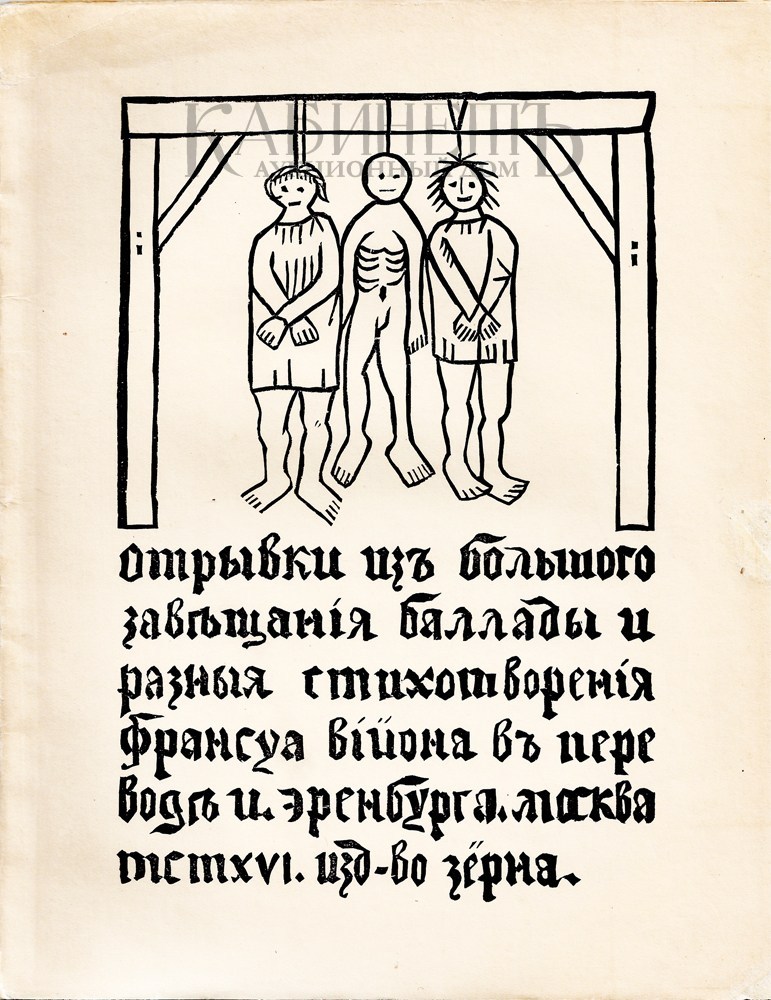 КАБИНЕТЪ
АУКЦИОННЫЙ ДОМ
отрывки изъ большого
завѣщанія баллады и
разныя стихотворенія
франсуа війона въ пере
водѣ и. эренбурга. москва
mcmxvi. изд-во зёрна.